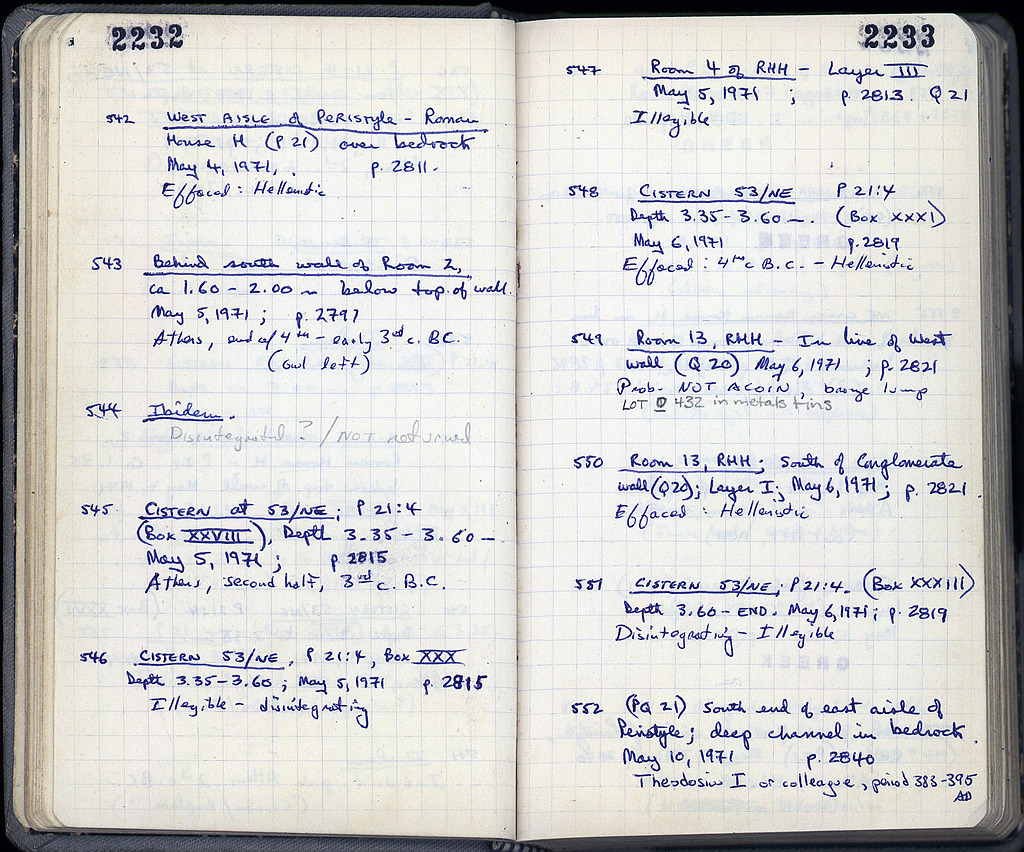 2232
542 West Aisle of Peristyle - Roman
House H (P 21) over bedrock
May 4, 1971, . p. 2811.
Effaced : Hellenistic
543 Behind south wall of Room 2,
ca 1.60 - 2.00 m below top of wall.
May 5, 1971 ; p. 2797
Athens, end of 4th - early 3rd c. BC.
(owl left)
544 Ibidem.
Disintegrated ? / NOT returned
545 CISTERN at 53/NE; P 21:4
(Box XXVIII), Depth 3.35 - 3.60 -
May 5, 1971 ; p. 2815
Athens, second half, 3rd c. B.C.
546 CISTERN 53/NE, P 21:4, Box XXX
Depth 3.35-3.60 ; May 5, 1971 p. 2815
Illegible - disintegrating
2233
547 Room 4 of RHH - Layer III
May 5, 1971 ; p. 2813. Q 21
Illegible
548 CISTERN 53/NE P 21:4
Depth 3.35 - 3.60 -. (Box XXXI)
May 6, 1971 p. 2819
Effaced : 4th c B.C. - Hellenistic
549 Room 13, RHH - In line of West
wall (Q 20) May 6, 1971 ; p. 2821
Prob. NOT A COIN, bronze lump
LOT 432 in metals tins
550 Room 13, RHH; South of Conglomerate
wall (Q20); Layer I; May 6, 1971 ; p. 2821
Effaced : Hellenistic
551 CISTERN 53/NE; P 21:4. (Box XXXIII)
Depth 3.60 - END. May 6, 1971; p. 2819
Disintegrating - Illegible
552 (PQ 21) South end of east aisle of
Peristyle; deep channel in bedrock.
May 10, 1971 p. 2840
Theodosius I or colleague, period 383-395
AD